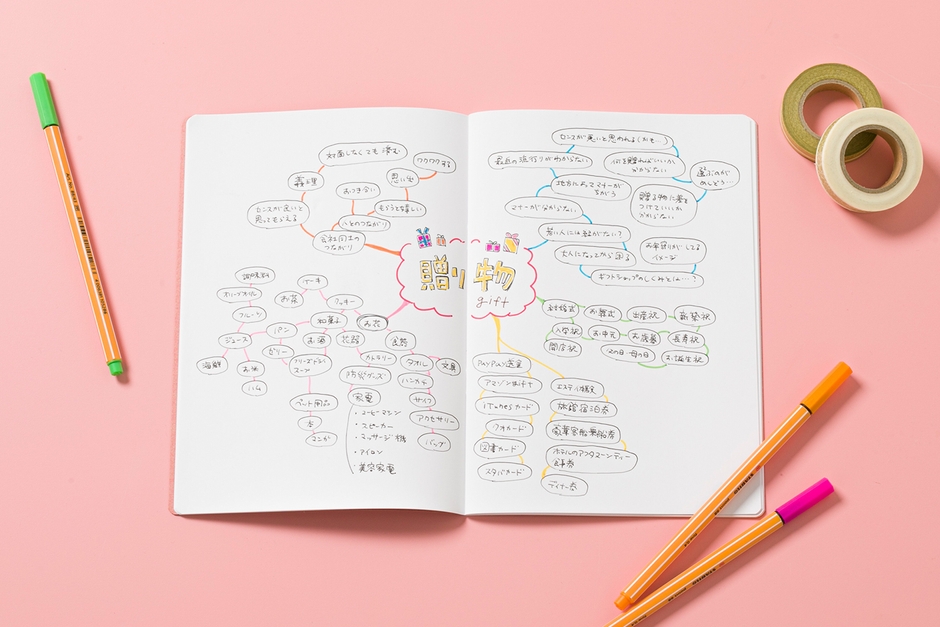 対面しなくても済む
ワクワクする
義理
おつき合い
思い出
センスが良いと
思ってもらえる
もらうと嬉しい
人とのつながり
会社同士の
つながり
センスが悪いと思われるかも…
最近の流行りがわからない
何を贈ればいいか
分からない
選ぶのが
めんどう…
地方によってマナーが
ちがう
贈る物に差を
つけていいか
分からない
マナーが分からない
若い人には縁がない?
お年寄りがしてる
イメージ
大人になってから困る
ギフトショップのしくみとは…?
贈り物
gift
調味料
ケーキ
オリーブオイル
お茶
クッキー
フルーツ
和菓子
お花
パン
ジュース
お酒
花器
食器
ゼリー
海鮮
お米
フリーズドライ
スープ
カトラリー
タオル
文具
ハム
防災グッズ
ハンカチ
ペット用品
家電
サイフ
本
アクセサリー
マンガ
バッグ
・コーヒーマシン
・スピーカー
・マッサージ機
・アイロン
・美容家電
結婚式
お葬式
出産祝
新築祝
入学祝
お中元
お歳暮
長寿祝
開店祝
父の日・母の日
お誕生祝
PayPay送金
アマゾンギフト
エステ体験
iTunesカード
旅館宿泊券
クオカード
豪華客船乗船券
図書カード
ホテルのアフタヌーンティー
食事券
スタバカード
ディナー券